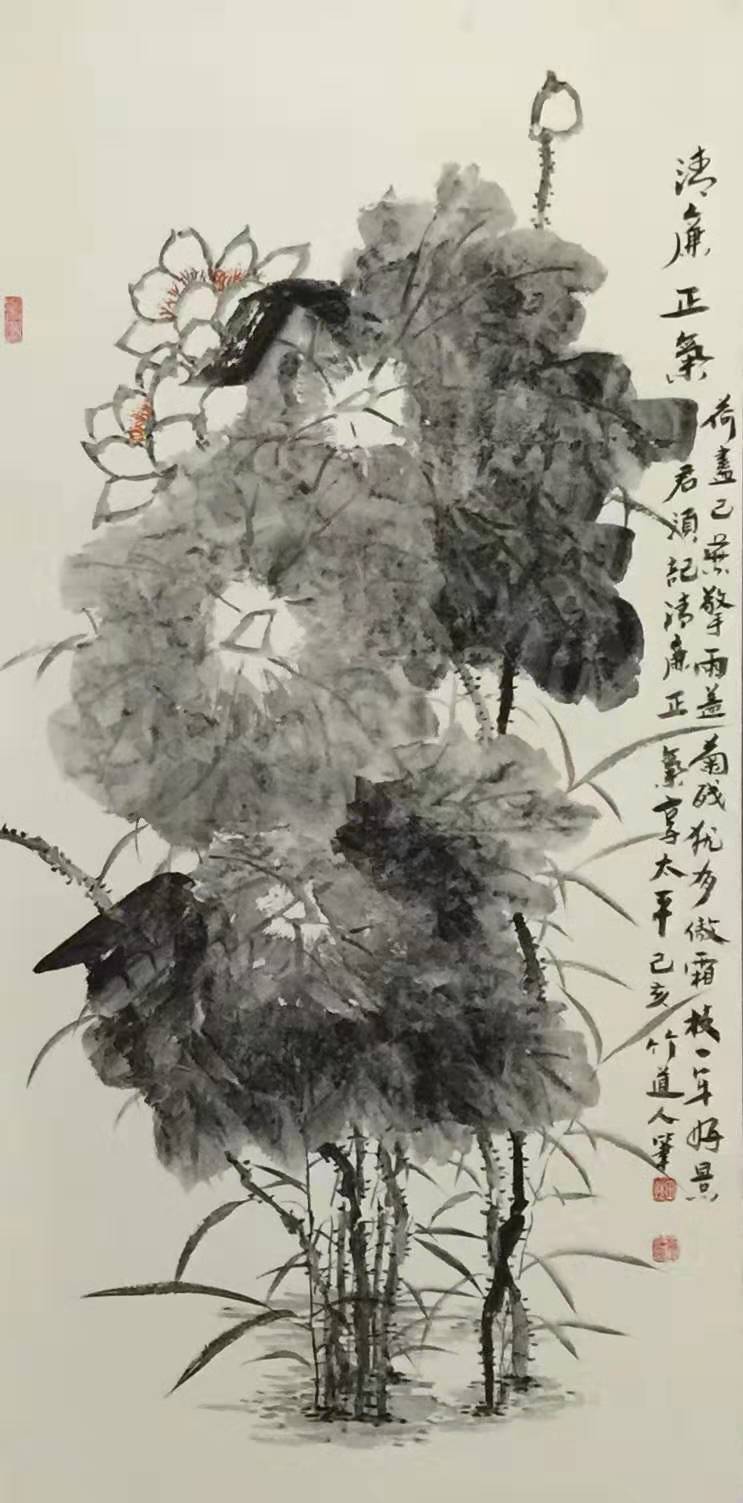 清廉正氣
荷盡已無擎雨盖菊残犹有傲霜枝一年好景
君須記清廉正氣享太平己亥竹道人筆